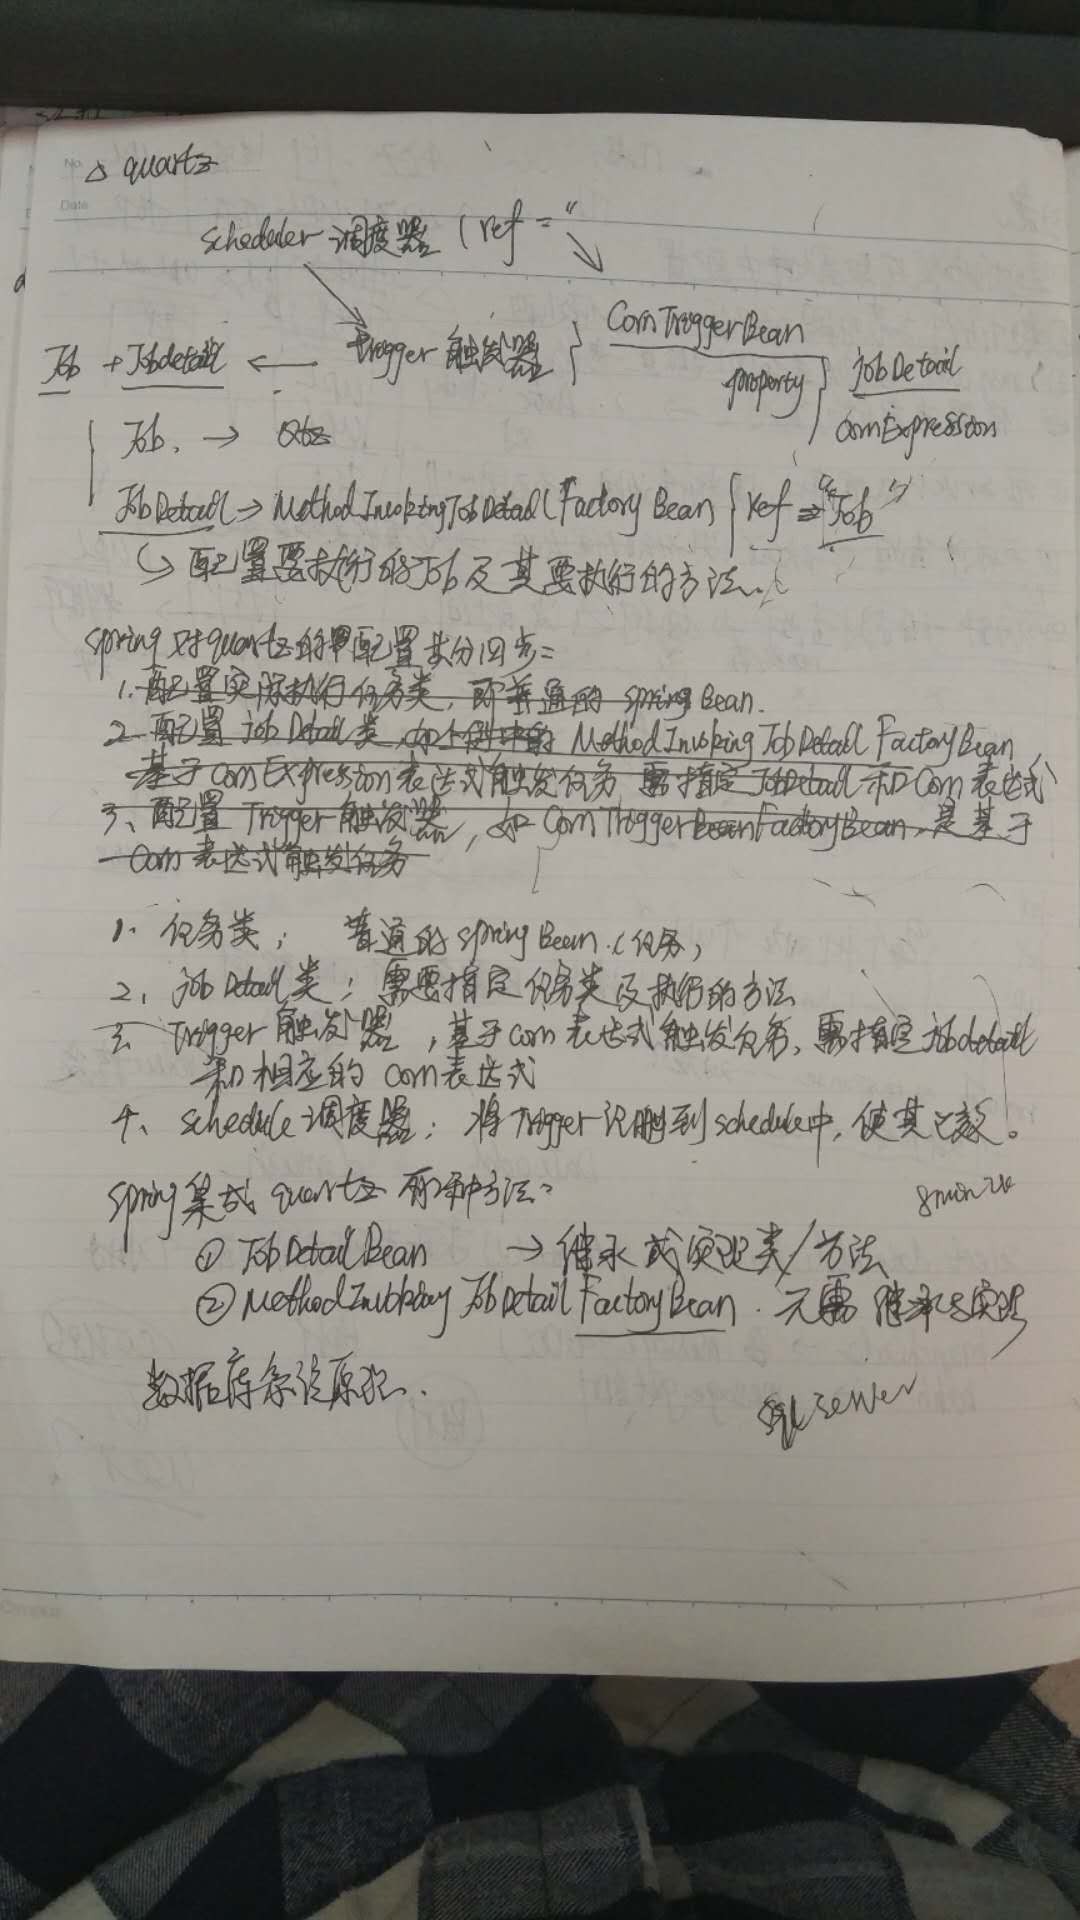 △ quartz
scheduler 调度器 ( ref = "
Job + Jobdetail ← Trigger 触发器 } ComTriggerBean
property } jobDetail
comExpression
Job. →
JobDetail → MethodInvokingJobDetailFactoryBean { ref ⇒ "Job"
↳ 配置要执行的Job及其要执行的方法.
spring 对quartz的配置共分四步:
1. 配置实际执行任务类, 即普通的 spring Bean.
2. 配置 job Detail 类, 如上例中的 MethodInvokingJobDetailFactoryBean,
基于comExpression表达式触发任务 需指定JobDetail 和Com表达式
3、配置 Trigger 触发器, 如 ComTriggerBeanFactoryBean, 是基于
Com 表达式触发任务
1. 任务类; 普通的 spring Bean. (任务)
2、job Detail 类; 需要指定任务类及执行的方法
3. Trigger 触发器, 基于com表达式触发任务, 需指定jobdetail
和相应的 com表达式
4、schedule 调度器; 将Trigger注册到schedule中, 使其生效。
spring 集成 quartz 有两种方法:
① JobDetailBean → 继承或实现类/方法
② MethodInvokingJobDetailFactoryBean. 无需继承与实现
数据库系统原理.
sql server